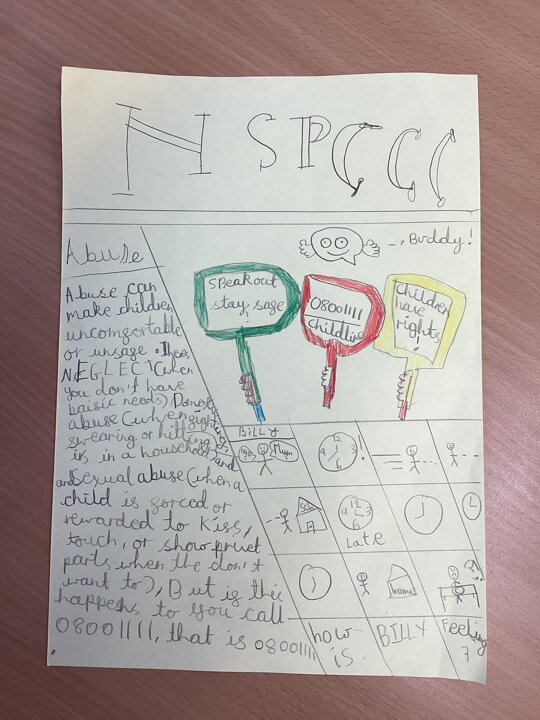 NSPCCC
Abuse
Abuse can
make children
uncomfortable
or unsafe. Theres
NEGLECT (when
you don't have
baisic needs) Domestic
abuse (when fighting,
swearing or hitting
is in a household) and
and Sexual abuse (when a
child is forced or
rewarded to kiss,
touch, or show privet
parts when the don't
want to), But if this
happens to you call
08001111, that is 08001111
..., Buddy!
Speak out
stay safe
!
0800 1111
childline
Children
have
rights!
BILLY
Mum
12
3
6
9
!
scho
12
3
6
9
Late
home
how
is
BILLY
Feeling
?